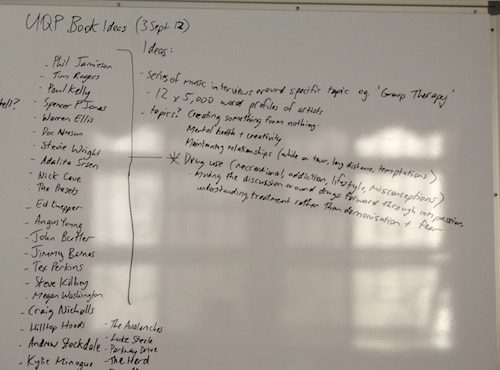 UQP Book Ideas (3 Sept 12)
- Phil Jamieson
- Tim Rogers
- Paul Kelly
- Spencer P Jones
- Warren Ellis
- Doc Neeson
- Stevie Wright
- Adalita Srsen
- Nick Cave
- The Presets
- Ed Kuepper
- Angus Young
- John Butler
- Jimmy Barnes
- Tex Perkins
- Steve Kilbey
- Megan Washington
- Craig Nicholls
- Hilltop Hoods
- Andrew Stockdale
- Kylie Minogue
- The Avalanches
- Luke Steele
- Parkway Drive
- The Herd
tell?
Ideas:
- series of music interviews around specific topic eg. 'Group Therapy'
- 12 x 5,000 word profiles of artists
- topics? Creating something from nothing
Mental health + creativity
Maintaining relationships (while on tour, long distance, temptations)
* Drug use (recreational, addiction, lifestyle, misconceptions)
- Moving the discussion around drugs forward through compassion,
understanding, treatment rather than demonisation + fear